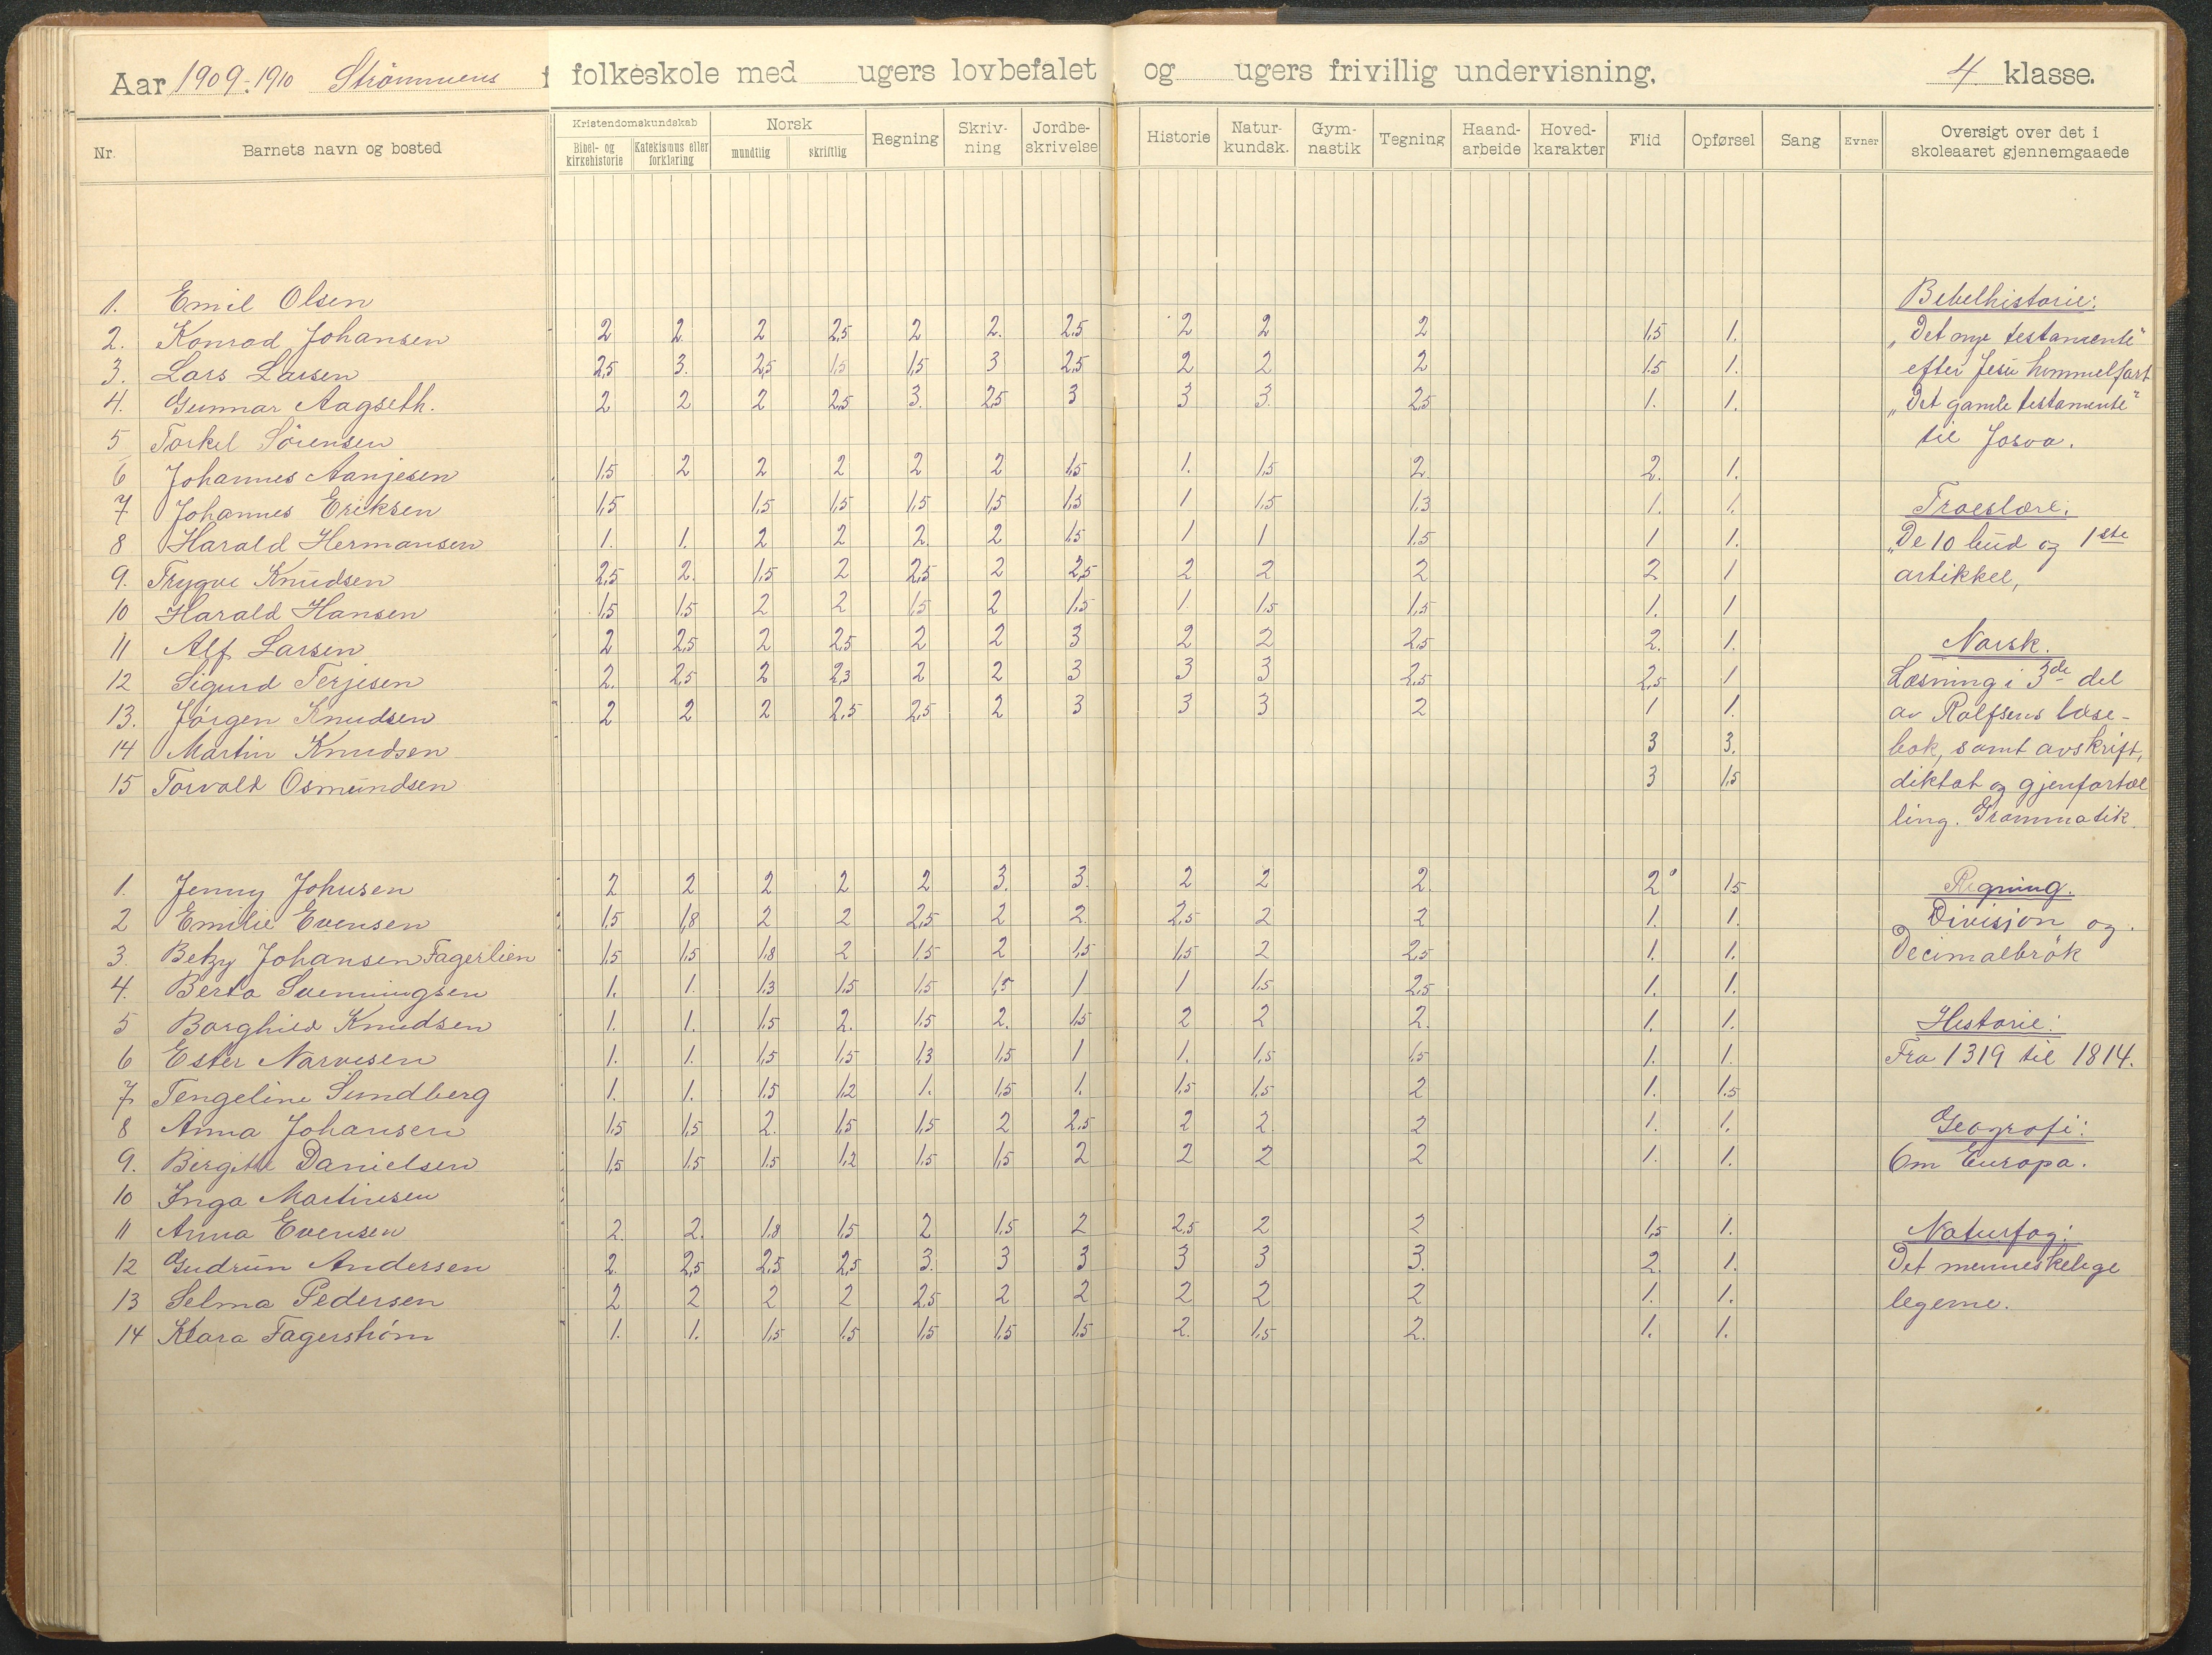 Aar 1909-1910 Strömmens folkeskole med ugers lovbefalet og ugers frivillig undervisning. 4 klasse.
Nr. Barnets navn og bosted Kristendomskundskab Bibel- og kirkehistorie Katekismus eller forklaring Norsk mundtlig skriftlig Regning Skriv-ning Jordbe-skrivelse Historie Natur-kundsk. Gym-nastik Tegning Haand-arbeide Hoved-karakter Flid Opførsel Sang Evner Oversigt over det i skoleaaret gjennemgaaede
1. Emil Olsen
2. Konrad Johansen 2 2 2 2,5 2 2. 2,5 2 2 2 1,5 1.
3. Lars Larsen 2,5 3. 2,5 1,5 1,5 3 2,5 2 2 2 1,5 1.
4. Gunnar Aagseth. 2 2 2 2,5 3. 2,5 3 3 3. 2,5 1. 1.
5 Torkel Sörensen
6 Johannes Aanjesen 1,5 2 2 2 2 2 1,5 1. 1,5 2 2. 1.
7 Johannes Eriksen 1,5 1,5 1,5 1,5 1,5 1,5 1 1,5 1,3 1. 1.
8 Harald Hermansen 1. 1. 2 2 2. 2 1,5 1 1 1,5 1 1.
9. Trygve Knudsen 2,5 2. 1,5 2 2,5 2 2,5 2 2 2 2 1
10 Harald Hansen 1,5 1,5 2 2 1,5 2 1,5 1. 1,5 1,5 1. 1
11 Alf Larsen 2 2,5 2 2,5 2 2 3 2 2 2,5 2. 1.
12 Sigurd Terjesen 2. 2,5 2 2,3 2 2 3 3 3 2,5 2,5 1
13. Jörgen Knudsen 2 2 2 2,5 2,5 2 3 3 3 2 1 1.
14 Martin Knudsen 3 3.
15 Torvald Osmundsen 3 1,5
1. Jenny Johnsen 2 2 2 2 2 3. 3. 2 2 2 2 1,5
2 Emilie Evensen 1,5 1,8 2 2 2,5 2 2 2,5 2 2 1. 1.
3. Betzy Johansen Fagerlien 1,5 1,5 1,8 2 1,5 2 1,5 1,5 2 2,5 1. 1.
4. Berta Svenningsen 1. 1. 1,3 1,5 1,5 1,5 1 1 1,5 2,5 1. 1.
5 Borghild Knudsen 1. 1. 1,5 2. 1,5 2. 1,5 2 2 2. 1. 1.
6 Ester Narvesen 1. 1. 1,5 1,5 1,3 1,5 1 1. 1,5 1,5 1. 1.
7 Tengeline Sundberg 1. 1. 1,5 1,2 1. 1,5 1. 1,5 1,5 2 1. 1,5
8 Anna Johansen 1,5 1,5 2. 1,5 1,5 2 2,5 2 2. 2 1. 1.
9. Birgitte Danielsen 1,5 1,5 1,5 1,2 1,5 1,5 2 2 2 2 1. 1.
10 Inga Martinsen
11 Anna Evensen 2. 2. 1,8 1,5 2 1,5 2 2,5 2 2 1,5 1.
12 Gudrun Andersen 2. 2,5 2,5 2,5 3. 3 3 3 3 3. 2. 1.
13 Selma Pedersen 2 2 2 2 2,5 2 2 2 2 2 1. 1.
14 Klara Fagerström 1. 1. 1,5 1,5 1,5 1,5 1,5 2. 1,5 2. 1. 1.
Bebelhistorie:
„Det nye testamente"
efter Jesu himmelfart
„Det gamle testamente"
til Josva.
Troeslære:
„De 10 bud og 1ste
artikkel,
Norsk.
Læsning i 3de del
av Rolfsens læse-
bok, samt avskrift,
diktat og gjenfortæl
ling. Grammatik.
Regning.
Divisjon og
Decimalbrök
Historie:
Fra 1319 til 1814.
Geografi:
Om Europa.
Naturfag:
Det menneskelige
legeme.